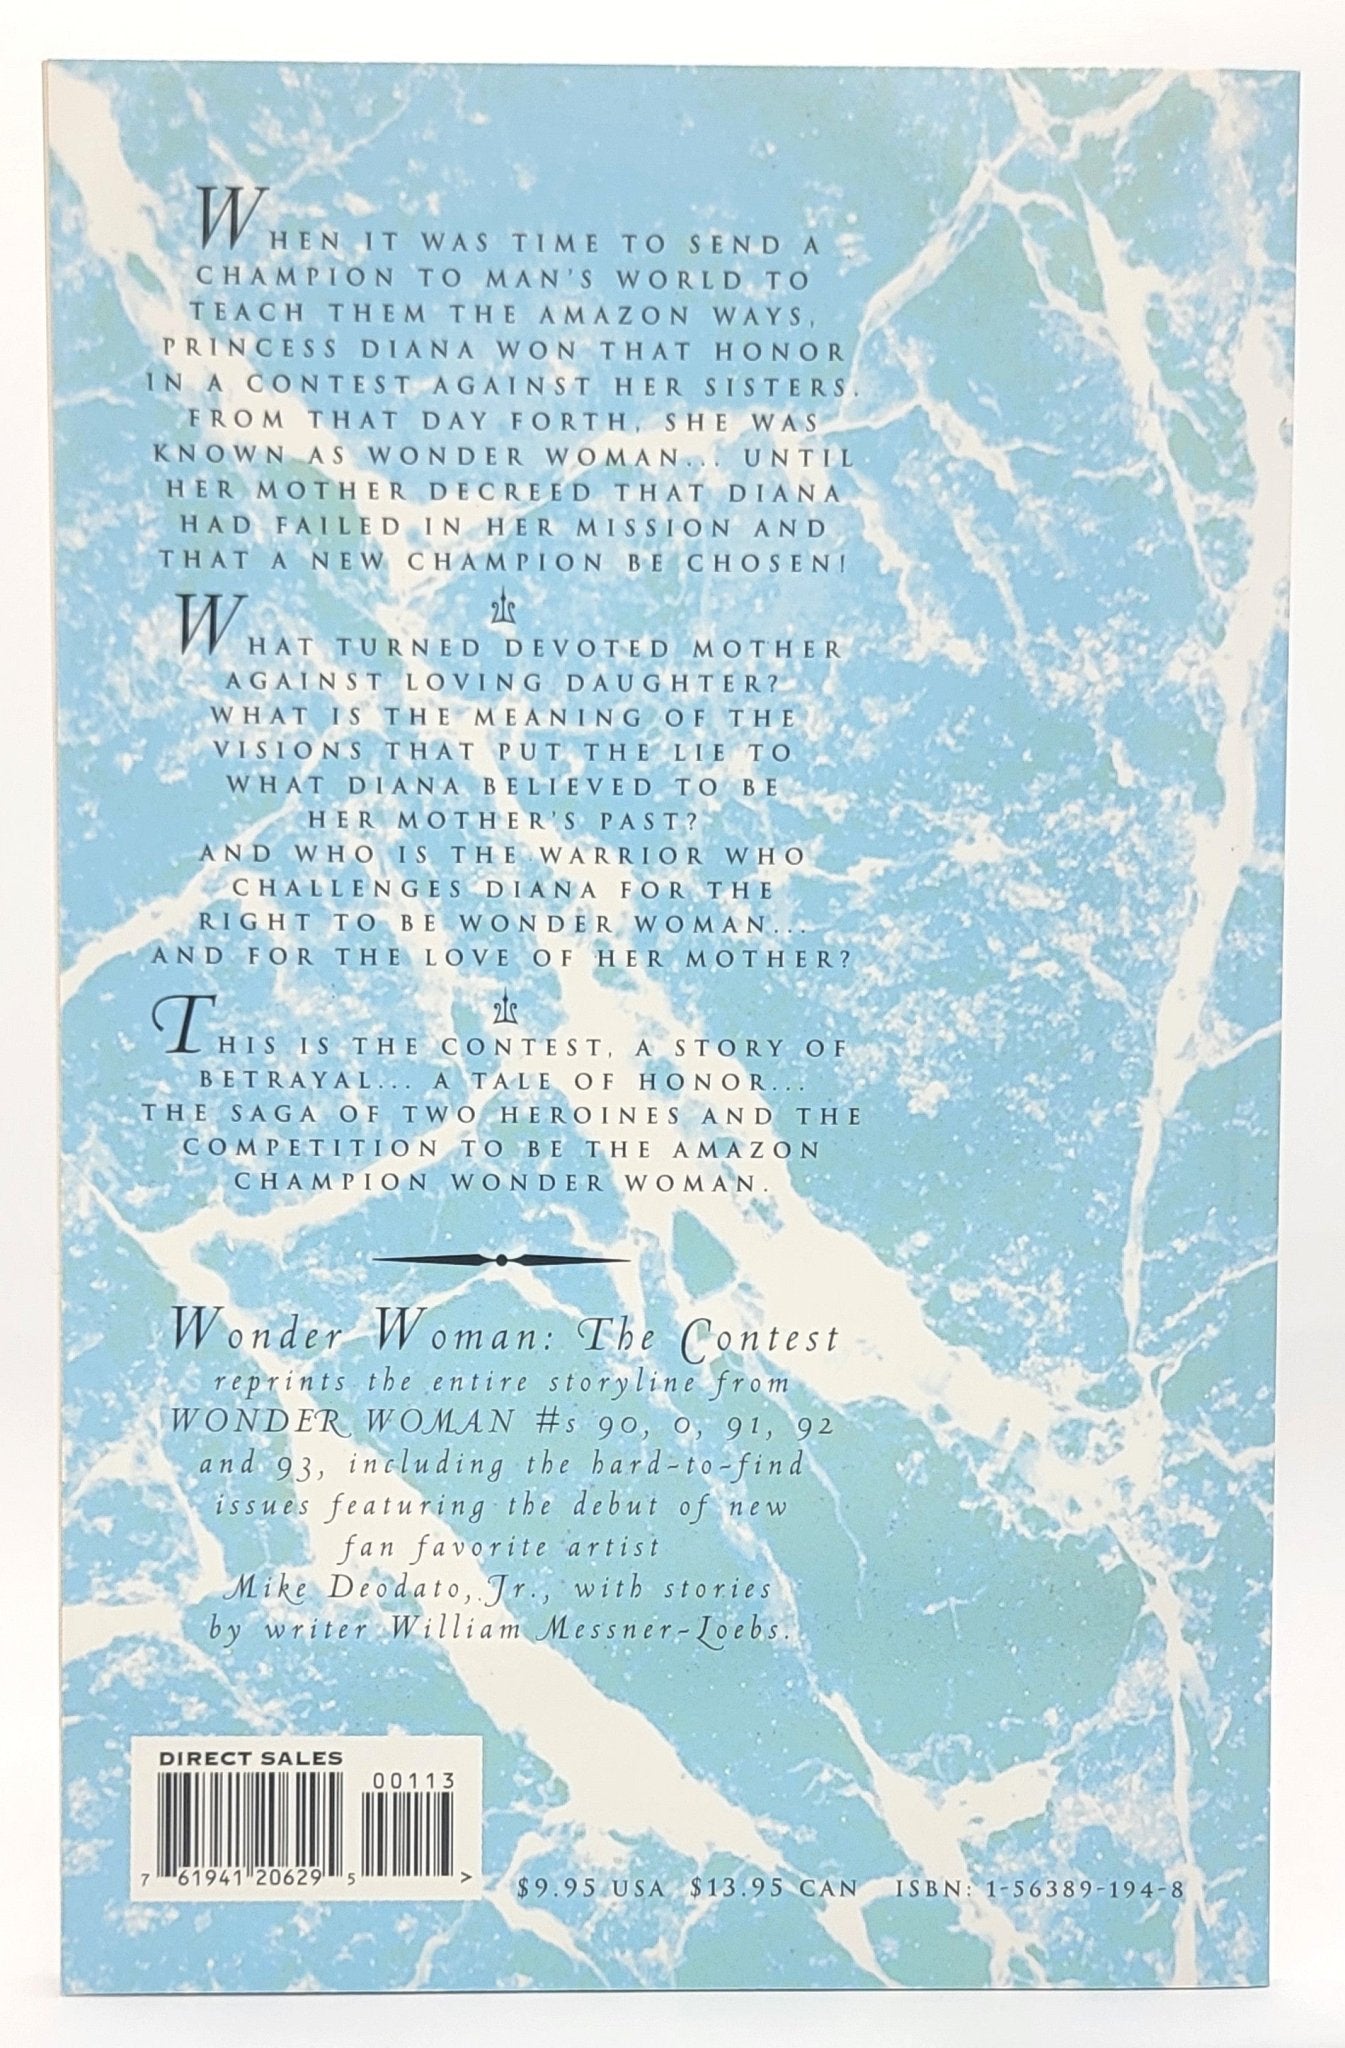 WHEN IT WAS TIME TO SEND A
CHAMPION TO MAN'S WORLD TO
TEACH THEM THE AMAZON WAYS,
PRINCESS DIANA WON THAT HONOR
IN A CONTEST AGAINST HER SISTERS.
FROM THAT DAY FORTH, SHE WAS
KNOWN AS WONDER WOMAN... UNTIL
HER MOTHER DECREED THAT DIANA
HAD FAILED IN HER MISSION AND
THAT A NEW CHAMPION BE CHOSEN!
WHAT TURNED DEVOTED MOTHER
AGAINST LOVING DAUGHTER?
WHAT IS THE MEANING OF THE
VISIONS THAT PUT THE LIE TO
WHAT DIANA BELIEVED TO BE
HER MOTHER'S PAST?
AND WHO IS THE WARRIOR WHO
CHALLENGES DIANA FOR THE
RIGHT TO BE WONDER WOMAN...
AND FOR THE LOVE OF HER MOTHER?
THIS IS THE CONTEST, A STORY OF
BETRAYAL... A TALE OF HONOR...
THE SAGA OF TWO HEROINES AND THE
COMPETITION TO BE THE AMAZON
CHAMPION WONDER WOMAN.
Wonder Woman: The Contest
reprints the entire storyline from
WONDER WOMAN #s 90, 0, 91, 92
and 93, including the hard-to-find
issues featuring the debut of new
fan favorite artist
Mike Deodato, Jr., with stories
by writer William Messner-Loebs.
DIRECT SALES
00113
7 61941 20629 5 >
$9.95 USA $13.95 CAN ISBN: 1-56389-194-8